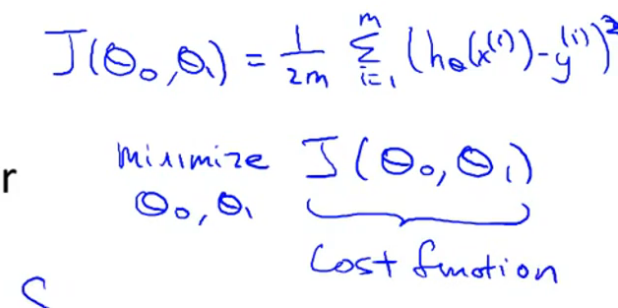 J(θ₀,θ₁) = 1/2m Σᵢ₌₁ᵐ (h_θ(x⁽ⁱ⁾)-y⁽ⁱ⁾)²
r minimize J(θ₀,θ₁)
θ₀,θ₁
Cost function